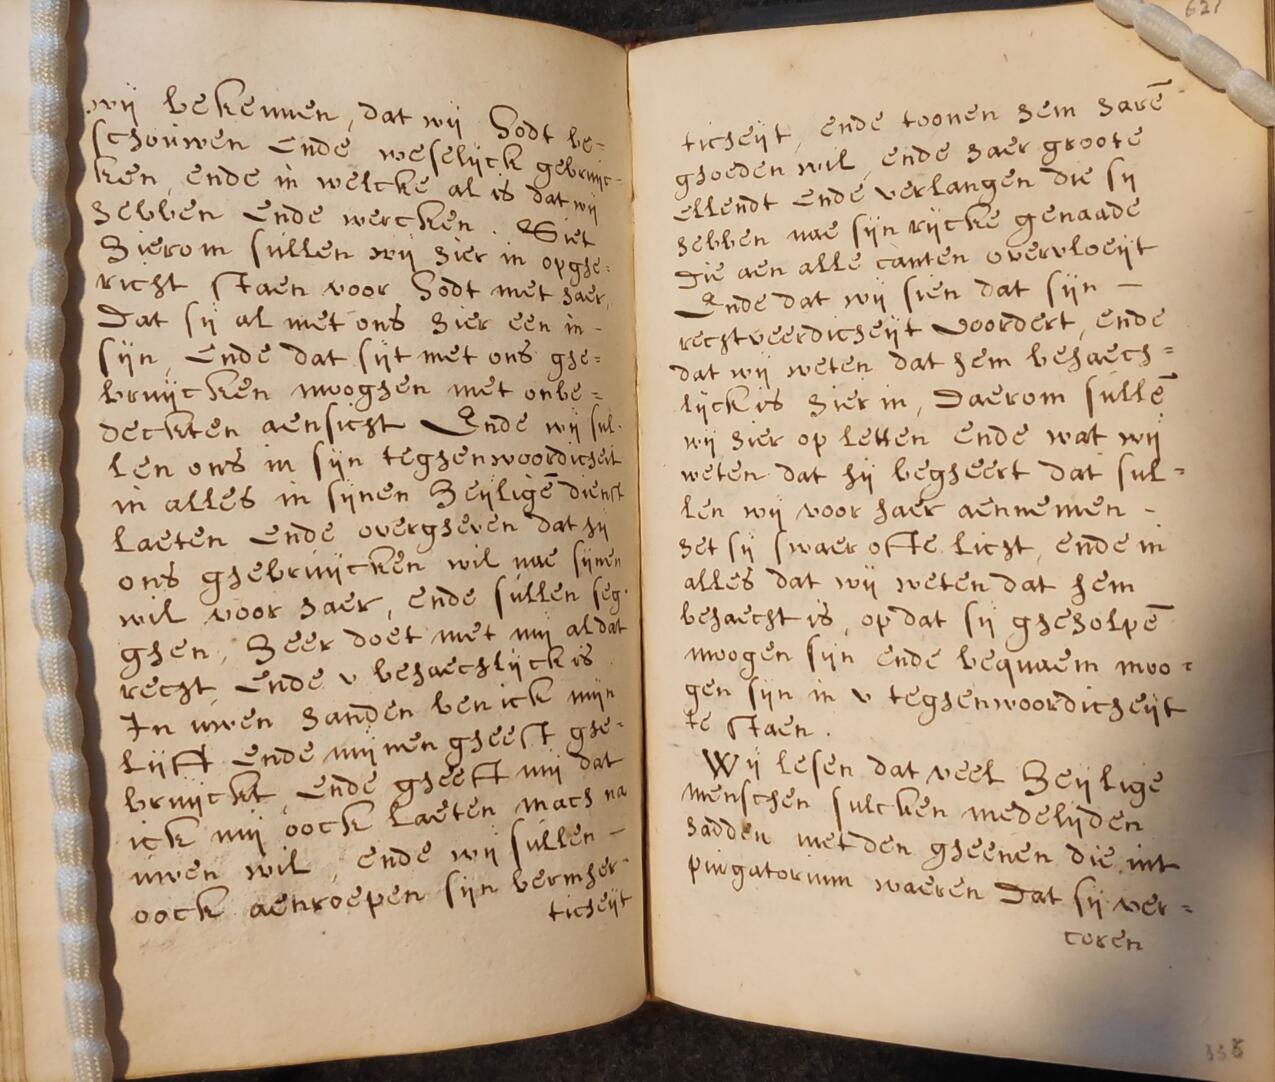 wij bekennen, dat wij Godt be=
schouwen ende weselijck gebruijc-
ken, ende in welcke al is dat wij
hebben ende wercken. Siet
hierom sullen wij hier in opghe=
richt staen voor Godt met haer,
Dat sij al met ons hier een in-
sijn, ende dat sijt met ons ghe=
bruijcken mooghen met onbe=
deckten aensicht Ende wij sul-
len ons in sijn teghenwoordicheit
in alles in sijnen heijligē dienst
laeten ende overgheven dat hij
ons ghebruijcken wil nae sijnen
wil voor haer, ende sullen seg-
ghen, heer doet met mij al dat
recht ende v behaechlijck is.
In uwen handen ben ick mijn
lijff ende mijnen gheest ghe-
bruijckt, ende gheeft mij dat
ick mij oock laeten mach na
uwen wil, ende wij sullen -
oock aenroepen sijn bermher-
ticheijt
621
ticheijt, ende toonen hem harē
ghoeden wil, ende haer groote
ellendt ende verlangen die sij
hebben nae sijn rijcke genaade
Die aen alle canten overvloeijt
Ende dat wij sien dat sijn -
rechtveerdicheijt voordert, ende
dat wij weten dat hem behaech=
lijck is hier in, Daerom sullē
wij hier op letten ende wat wij
weten dat hij begheert dat sul=
len wij voor haer aennemen -
het sij swaer ofte licht, ende in
alles dat wij weten dat hem
behaecht is, op dat sij gheholpē
moogen sijn ende bequaem moo=
gen sijn in v teghenwoordicheijt
te staen.
Wij lesen dat veel heijlige
menschen sulcken medelijden
hadden met den gheenen die int
purgatorium waeren Dat sij ver=
coren